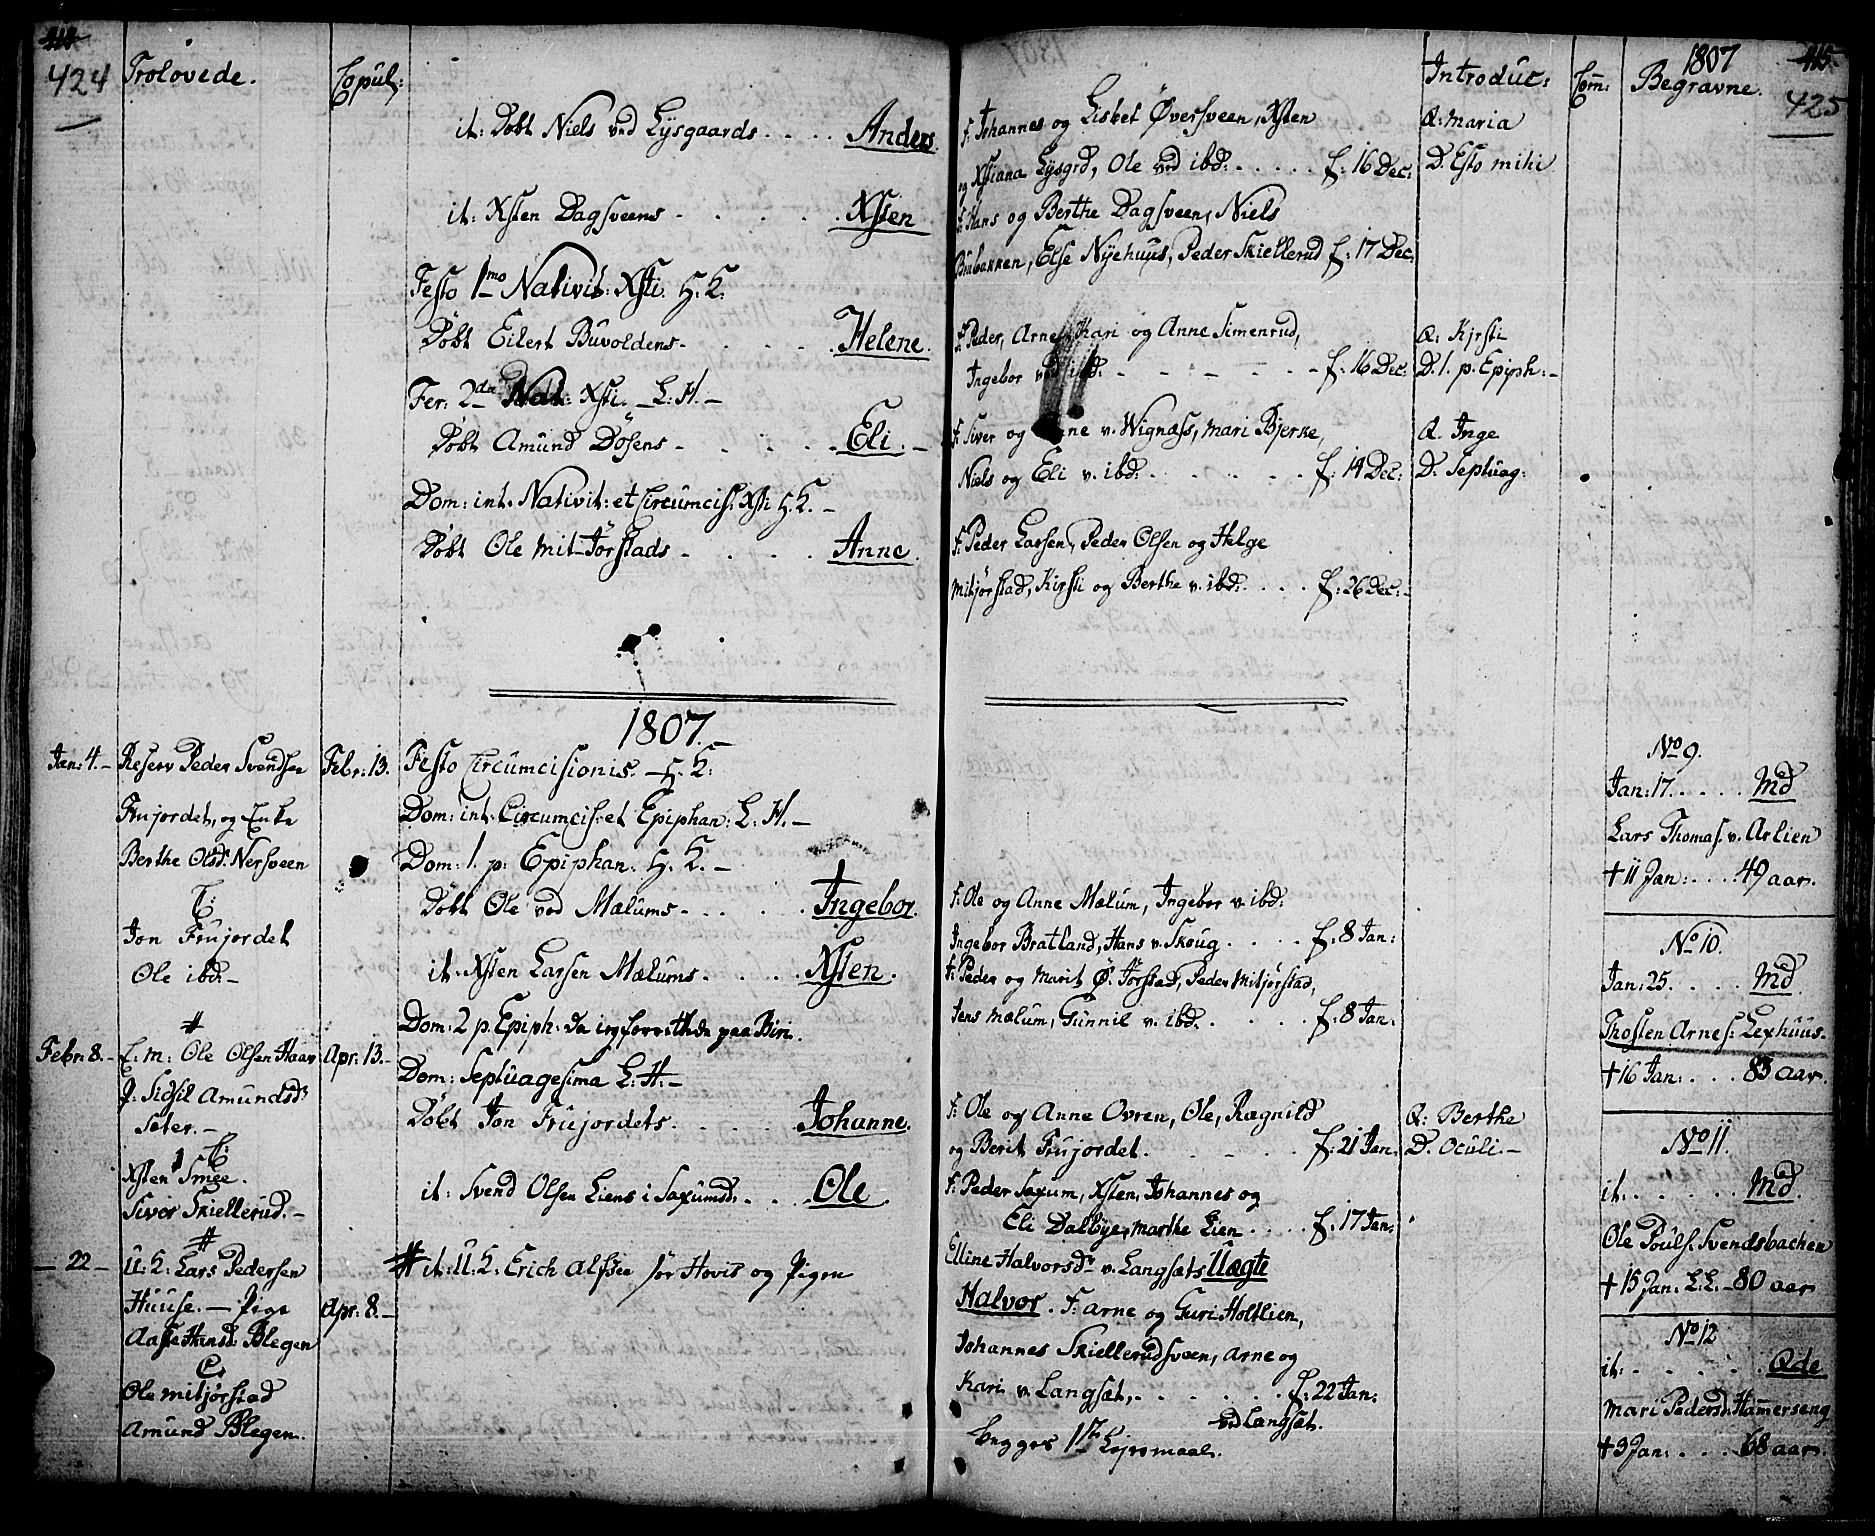 424
Trolovede.
Copul:
it: Døbt Niels ved Lysgaards . . . . Anders.
it: Xsten Dagsveens . . . . . Xsten
Festo 1mo Nativit: Xsti. H. K.
Døbt Eilert Buvoldens . . . . . Helene.
Fer: 2da Nat: Xsti. L: H. -
Døbt Amund Dösens . . . . . Eli. -
Dom: int. Nativit: et Circumcis: Xsti H. K. -
Døbt Ole Mit-Jörstads . . . . Anne.
1807. -
Jan: 4. -
Reserv Peder Svendsen
Frujordet, og Enke
Berthe Olsd: Nersveen
C:
Jon Frujordet
Ole ibd: -
Febr: 13.
Festo Circumcisionis. - H. K:
Dom: int. Circumcis: et Epiphan: L. H. -
Dom: 1. p. Epiphan: H. K. -
Døbt Ole ved Mælums . . . . . Ingebor.
it. Xsten Larsen Mælums . . . . Xsten.
Dom: 2 p. Epiph. da ieg forrettede paa Biri.
Dom: Septuagesima L: H: -
Døbt Jon Frujordets . . . . . Johanne.
it: Svend Olsen Liens i Saxumsd: . . . Ole
# it: U: K: Erich Alfsen sør Hovis og Pigen
#
Febr: 8. -
E: m: Ole Olsen Haav
P: Sidsil Amundsd:
Seter. -
C:
Xsten Smee.
Siver Skiellerud. -
Apr: 13. -
#
- 22 -
U: K: Lars Pedersen
Huuse. - Pige
Aasse Hansd: Blegen
C:
Ole Mitjørstad
Amund Blegen.
Apr: 8. -
F: Johannes og Lisbet Översveen, Xsten
og Xstiana Lysgrd, Ole ved ibd: . . . . . f: 16 Dec:
F: Hans og Berthe Dagsveen, Niels
Brubakken, Else Nyehuus, Peder Skiellerud f: 17 Dec:
F: Peder, Arne, Kari og Anne Simenrud,
Ingebor ved ibd: - - - - - f: 16 Dec:
F: Siver og Anne v. Wignæss, Mari Bjerke,
Niels og Eli v. ibd: . . . . . . f: 14 Dec:
F: Peder Larsen, Peder Olsen og Helge
Mitjørstad, Kirsti og Berthe v. ibd: . . . . f: 26 Dec: -
F: Ole og Anne Mælum, Ingebor v. ibd:
Ingebor Bratland, Hans v. Skoug . . . . f: 8 Jan:
F: Peder og Marit Ö. Jörstad, Peder Mitjørstad,
Jens Mælum, Gunnil v. ibd: . . . . . f: 8 Jan:
F: Ole og Anne Ovren, Ole, Ragnild
og Berit Frujordet. . . . . . f: 21 Jan:
F: Peder Saxum, Xsten, Johannes og
Eli Dalbye, Marthe Lien . . . . f: 17 Jan:
Elline Halvorsdr v. Langsæts Uægte
Halvor. F: Arne og Guri Holtlien,
Johannes Skiellerudsveen, Arne og
Kari v. Langsæt, . . . . . . f: 22 Jan:
ved Langsæt.
begges 1ste Lejermaal.
Introduc:
Q: Maria
D. Esto mihi
Q: Kjrsti
D. 1. p. Epiph: -
Q. Inge
D. Septuag:
Q: Berthe
D. Oculi. -
Com:
1807
Begravne.
425
No 9.
Jan: 17. . . . . Md
Lars Thomas: v. Arlien
† 11 Jan: . . . . 49 aar.
No 10.
Jan: 25. . . . . Md
Thosten Arnes: Lexhuus.
† 16 Jan: . . . 83 aar.
No 11.
it: . . . . . Md.
Ole Pouls: Svendsbachen
† 15 Jan: L: L. - 80 aar
No 12
it: . . . . . Qde
Mari Pedersd: Hamerseng
† 3 Jan: . . . 68 aar.